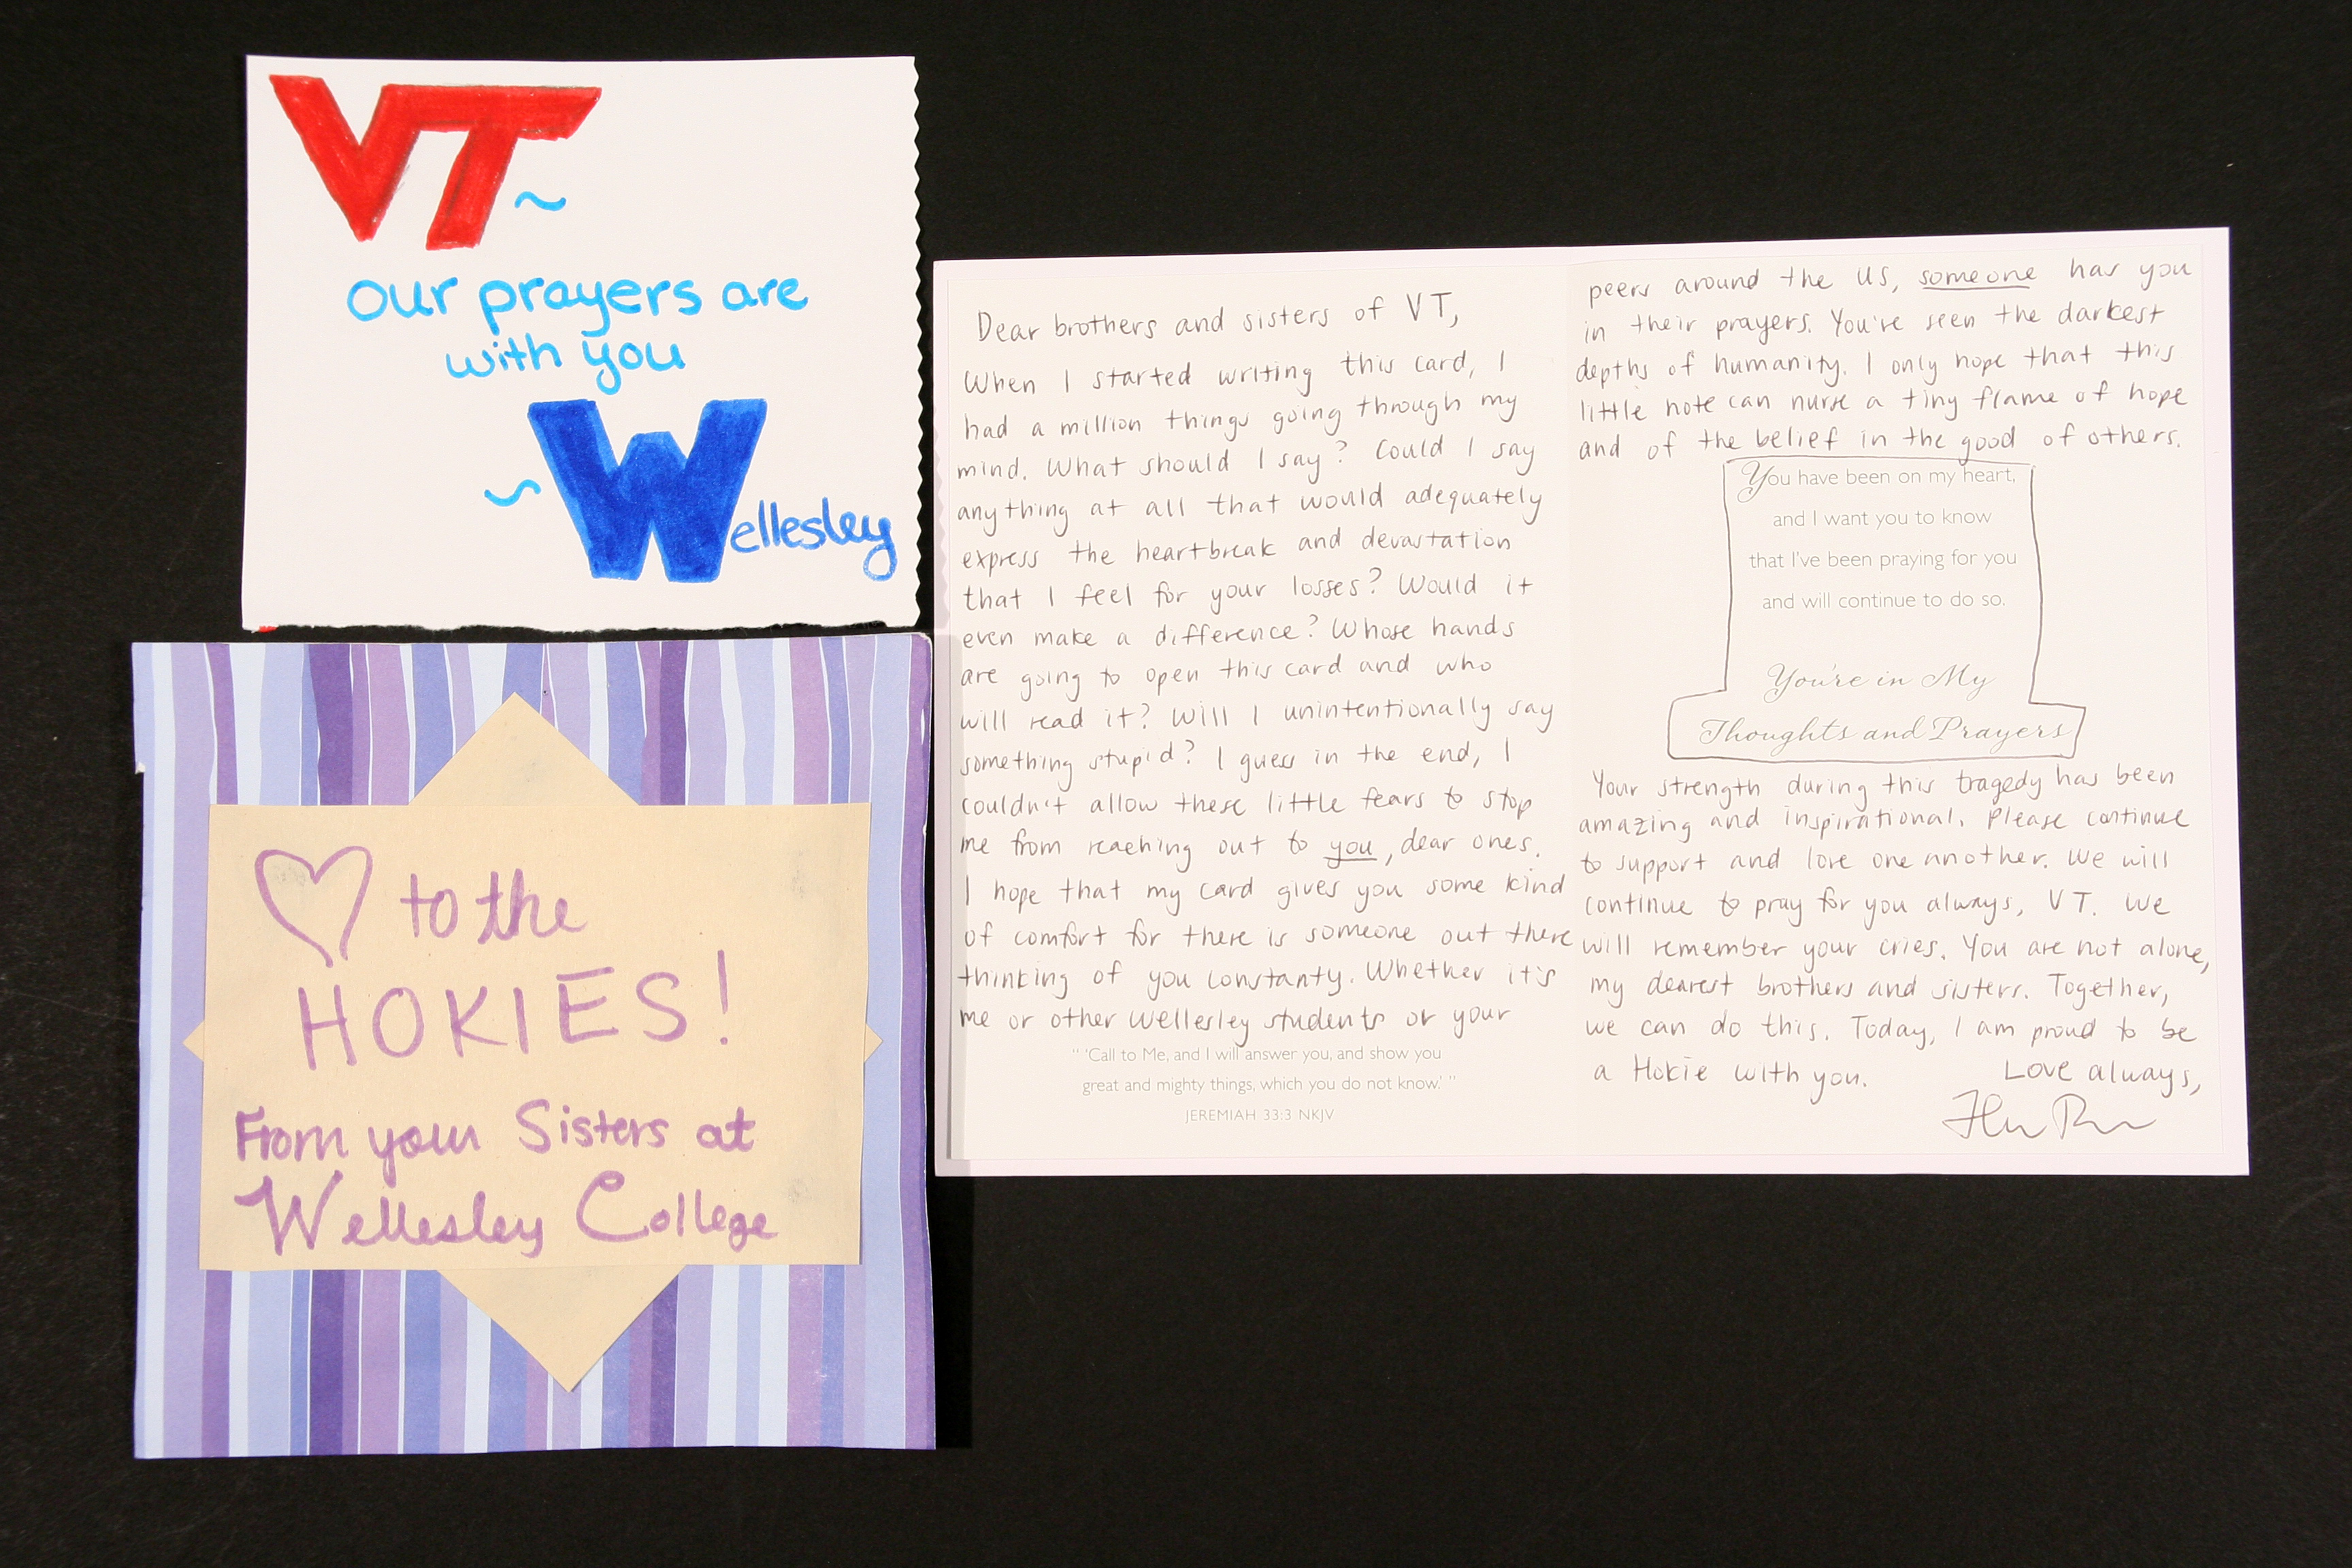 VT ~
our prayers are
with you
~ Wellesley
♡ to the
HOKIES!
From your Sisters at
Wellesley College
Dear brothers and sisters of VT,
When I started writing this card, I
had a million things going through my
mind. What should I say? Could I say
anything at all that would adequately
express the heartbreak and devastation
that I feel for your losses? Would it
even make a difference? Whose hands
are going to open this card and who
will read it? Will I unintentionally say
something stupid? I guess in the end, I
couldn't allow these little fears to stop
me from reaching out to you, dear ones.
I hope that my card gives you some kind
of comfort for there is someone out there
thinking of you constanty. Whether it's
me or other Wellesley students or your
" 'Call to Me, and I will answer you, and show you
great and mighty things, which you do not know.' "
JEREMIAH 33:3 NKJV
peers around the US, someone has you
in their prayers. You've seen the darkest
depths of humanity. I only hope that this
little note can nurse a tiny flame of hope
and of the belief in the good of others.
You have been on my heart,
and I want you to know
that I've been praying for you
and will continue to do so.
You're in My
Thoughts and Prayers
Your strength during this tragedy has been
amazing and inspirational. Please continue
to support and love one another. We will
continue to pray for you always, VT. We
will remember your cries. You are not alone,
my dearest brothers and sisters. Together,
we can do this. Today, I am proud to be
a Hokie with you.
Love always,